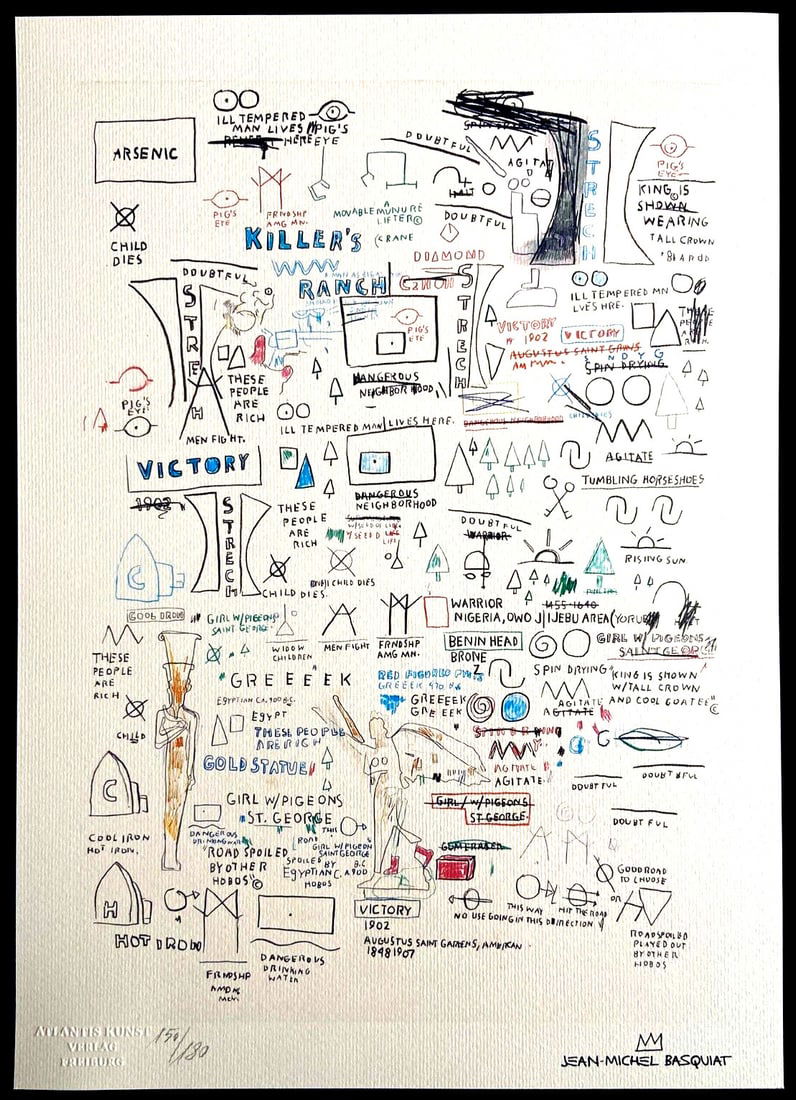 ILL TEMPERED
MAN LIVES
HERE
PIG'S
EYE
ARSENIC
DOUBTFUL
SPIN
AGITAT
STRECH
PIG'S
EYE
KING IS
SHOWN
WEARING
TALL CROWN
CHILD
DIES
PIG'S
EYE
FRNDSHP
AMG MN.
MOVABLE
A
MUNURE
LIFTER©
CRANE
HALT
DOUBTFUL
KILLER'S
RANCH
DIAMOND
DOUBTFUL
STRECH
PIG'S
EYE
STRECH
ILL TEMPERED MN
LVES HRE.
VICTORY
1902
VICTORY
AUGUSTUS SAINT GAINS
SPIN DRYING
PIG'S
EYE
THESE
PEOPLE
ARE
RICH
DANGEROUS
NEIGHBORHOOD
MEN FIGHT.
ILL TEMPERED MAN LIVES HERE.
DANGEROUS NEIGHBORHOOD
CHILD DIES
AGITATE
VICTORY
1902
STRECH
DANGEROUS
NEIGHBORHOOD
TUMBLING HORSESHOES
THESE
PEOPLE
ARE
RICH
DOUBTFUL
WARRIOR
RISING SUN.
C
CHILD DIES.
CHILD DIES
GOOD DROU
GIRL W/PIGEONS
SAINT GEORGE.
WIDOW
CHILDREN
MEN FIGHT
FRNDSHP
AMG MN.
WARRIOR
NIGERIA, OWO J IJEBU AREA (YORU
M55-1640
BENIN HEAD
BRONE
GIRL W/PIGEONS
SAINT GEORG
THESE
PEOPLE
ARE
RICH
GREEEEK
SPIN DRYING
"KING IS SHOWN
W/TALL CROWN
AND COOL GOATEE"©
EGYPTIAN CA. 900 B.C.
GREEEEK
GREEEEK
AGITATE
AGITATE
CHILD
EGYPT
THESE PEOPLE
ARE RICH
GOLD STATUE
AGITATE
AGITATE.
G
DOUBTFUL
DOUBTFUL
C
COOL IRON
HOT IRON.
GIRL W/PIGEONS
ST. GEORGE
GIRL/W/PIGEONS
ST. GEORGE.
DOUBTFUL
DANGEROUS
DRINKING WATER
"ROAD SPOILED
BY OTHER
HOBOS"©
THIS
ROAD
SPOILED
BY
GIRL W/PIGEON
SAINT GEORGE
B.C
EGYPTIAN C. A900
HOBOS
GOOD ROAD
TO CHOOSE
OR
H
HOT IRON
FRNDSHP
AMONG
MEN
DANGEROUS
DRINKING
WATER
VICTORY
1902
AUGUSTUS SAINT GARDENS, AMERICAN.
1848 1907
NO USE GOING IN THIS DIRECTION
THIS WAY
HIT THE ROAD
ROAD SPOILED
PLAYED OUT
BY OTHER
HOBOS
ATLANTIS KUNST
VERLAG
FREIBURG
150/180
JEAN-MICHEL BASQUIAT